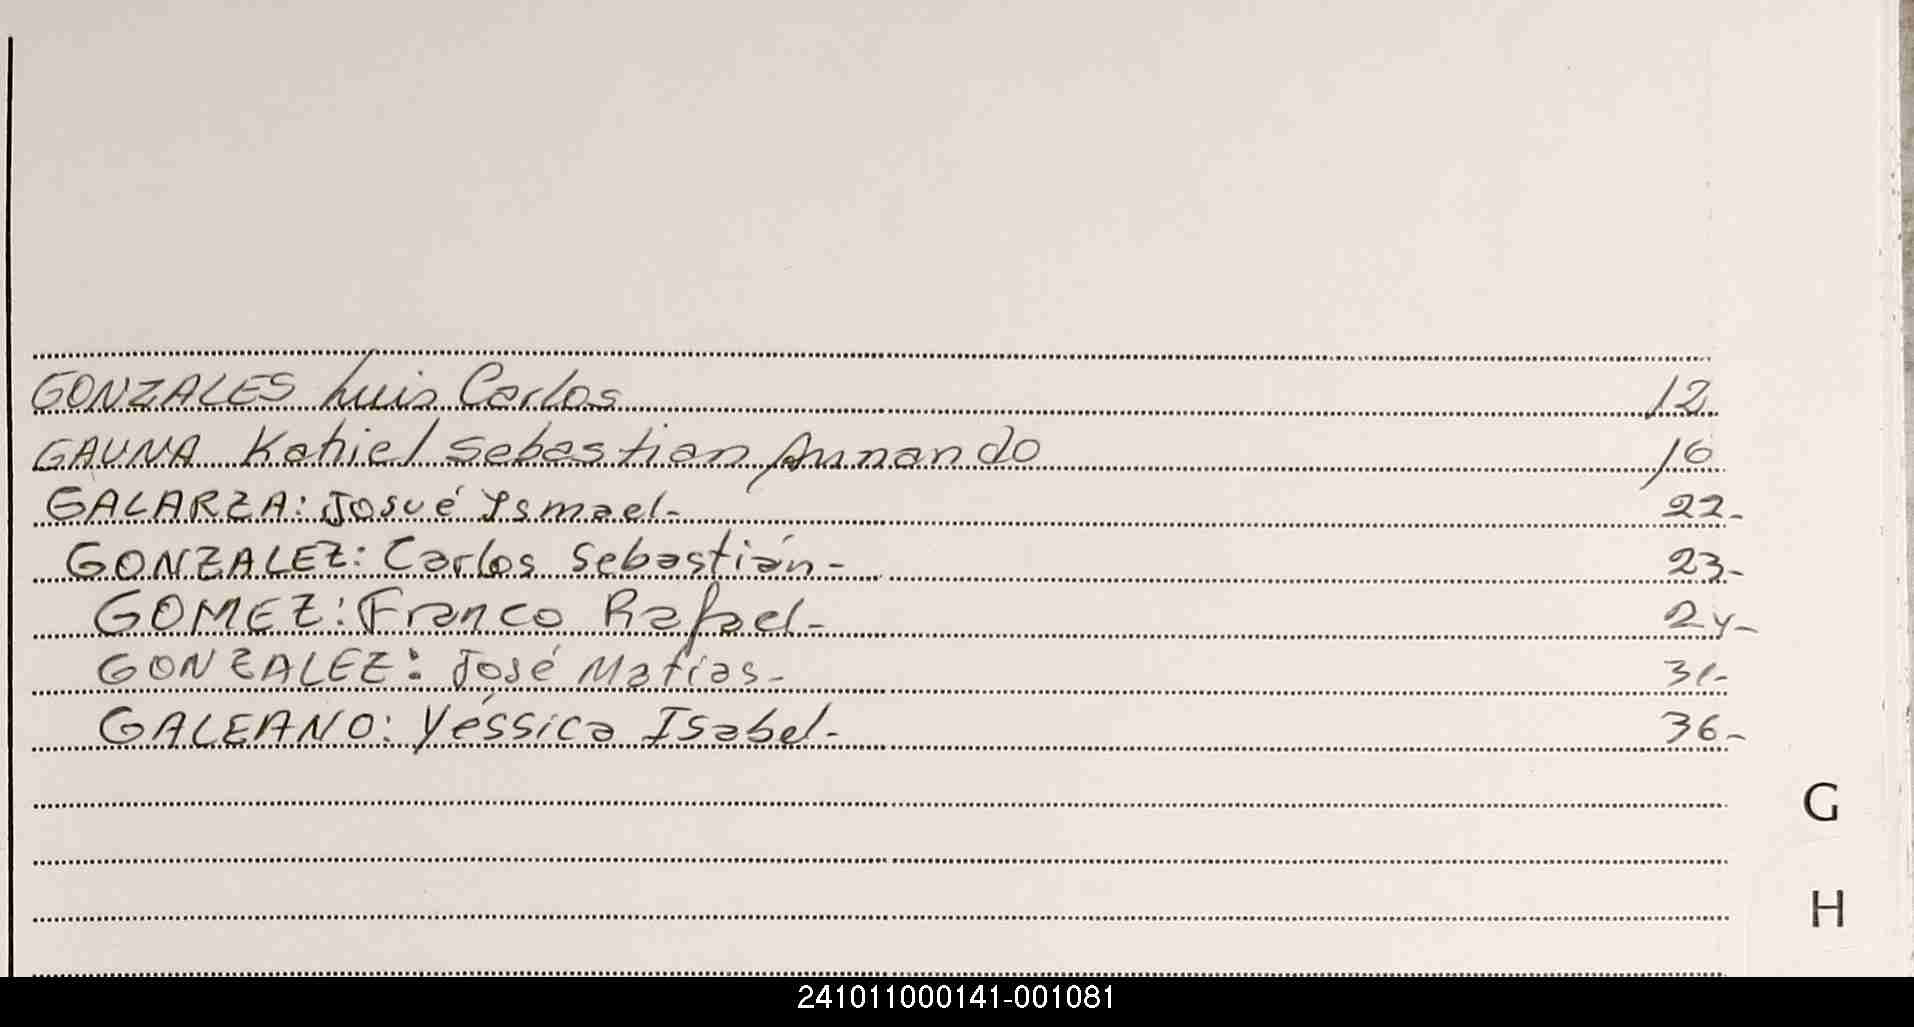 GONZALES Luis Carlos 12
GAUNA Kahiel Sebastian Armando 16
GALARZA: Josué Ismael- 22-
GONZALEZ: Carlos Sebastián- 23-
GOMEZ: Franco Rafael- 24-
GONZALEZ: José Matías- 31-
GALEANO: Yéssica Isabel- 36-
G
H
241011000141-001081